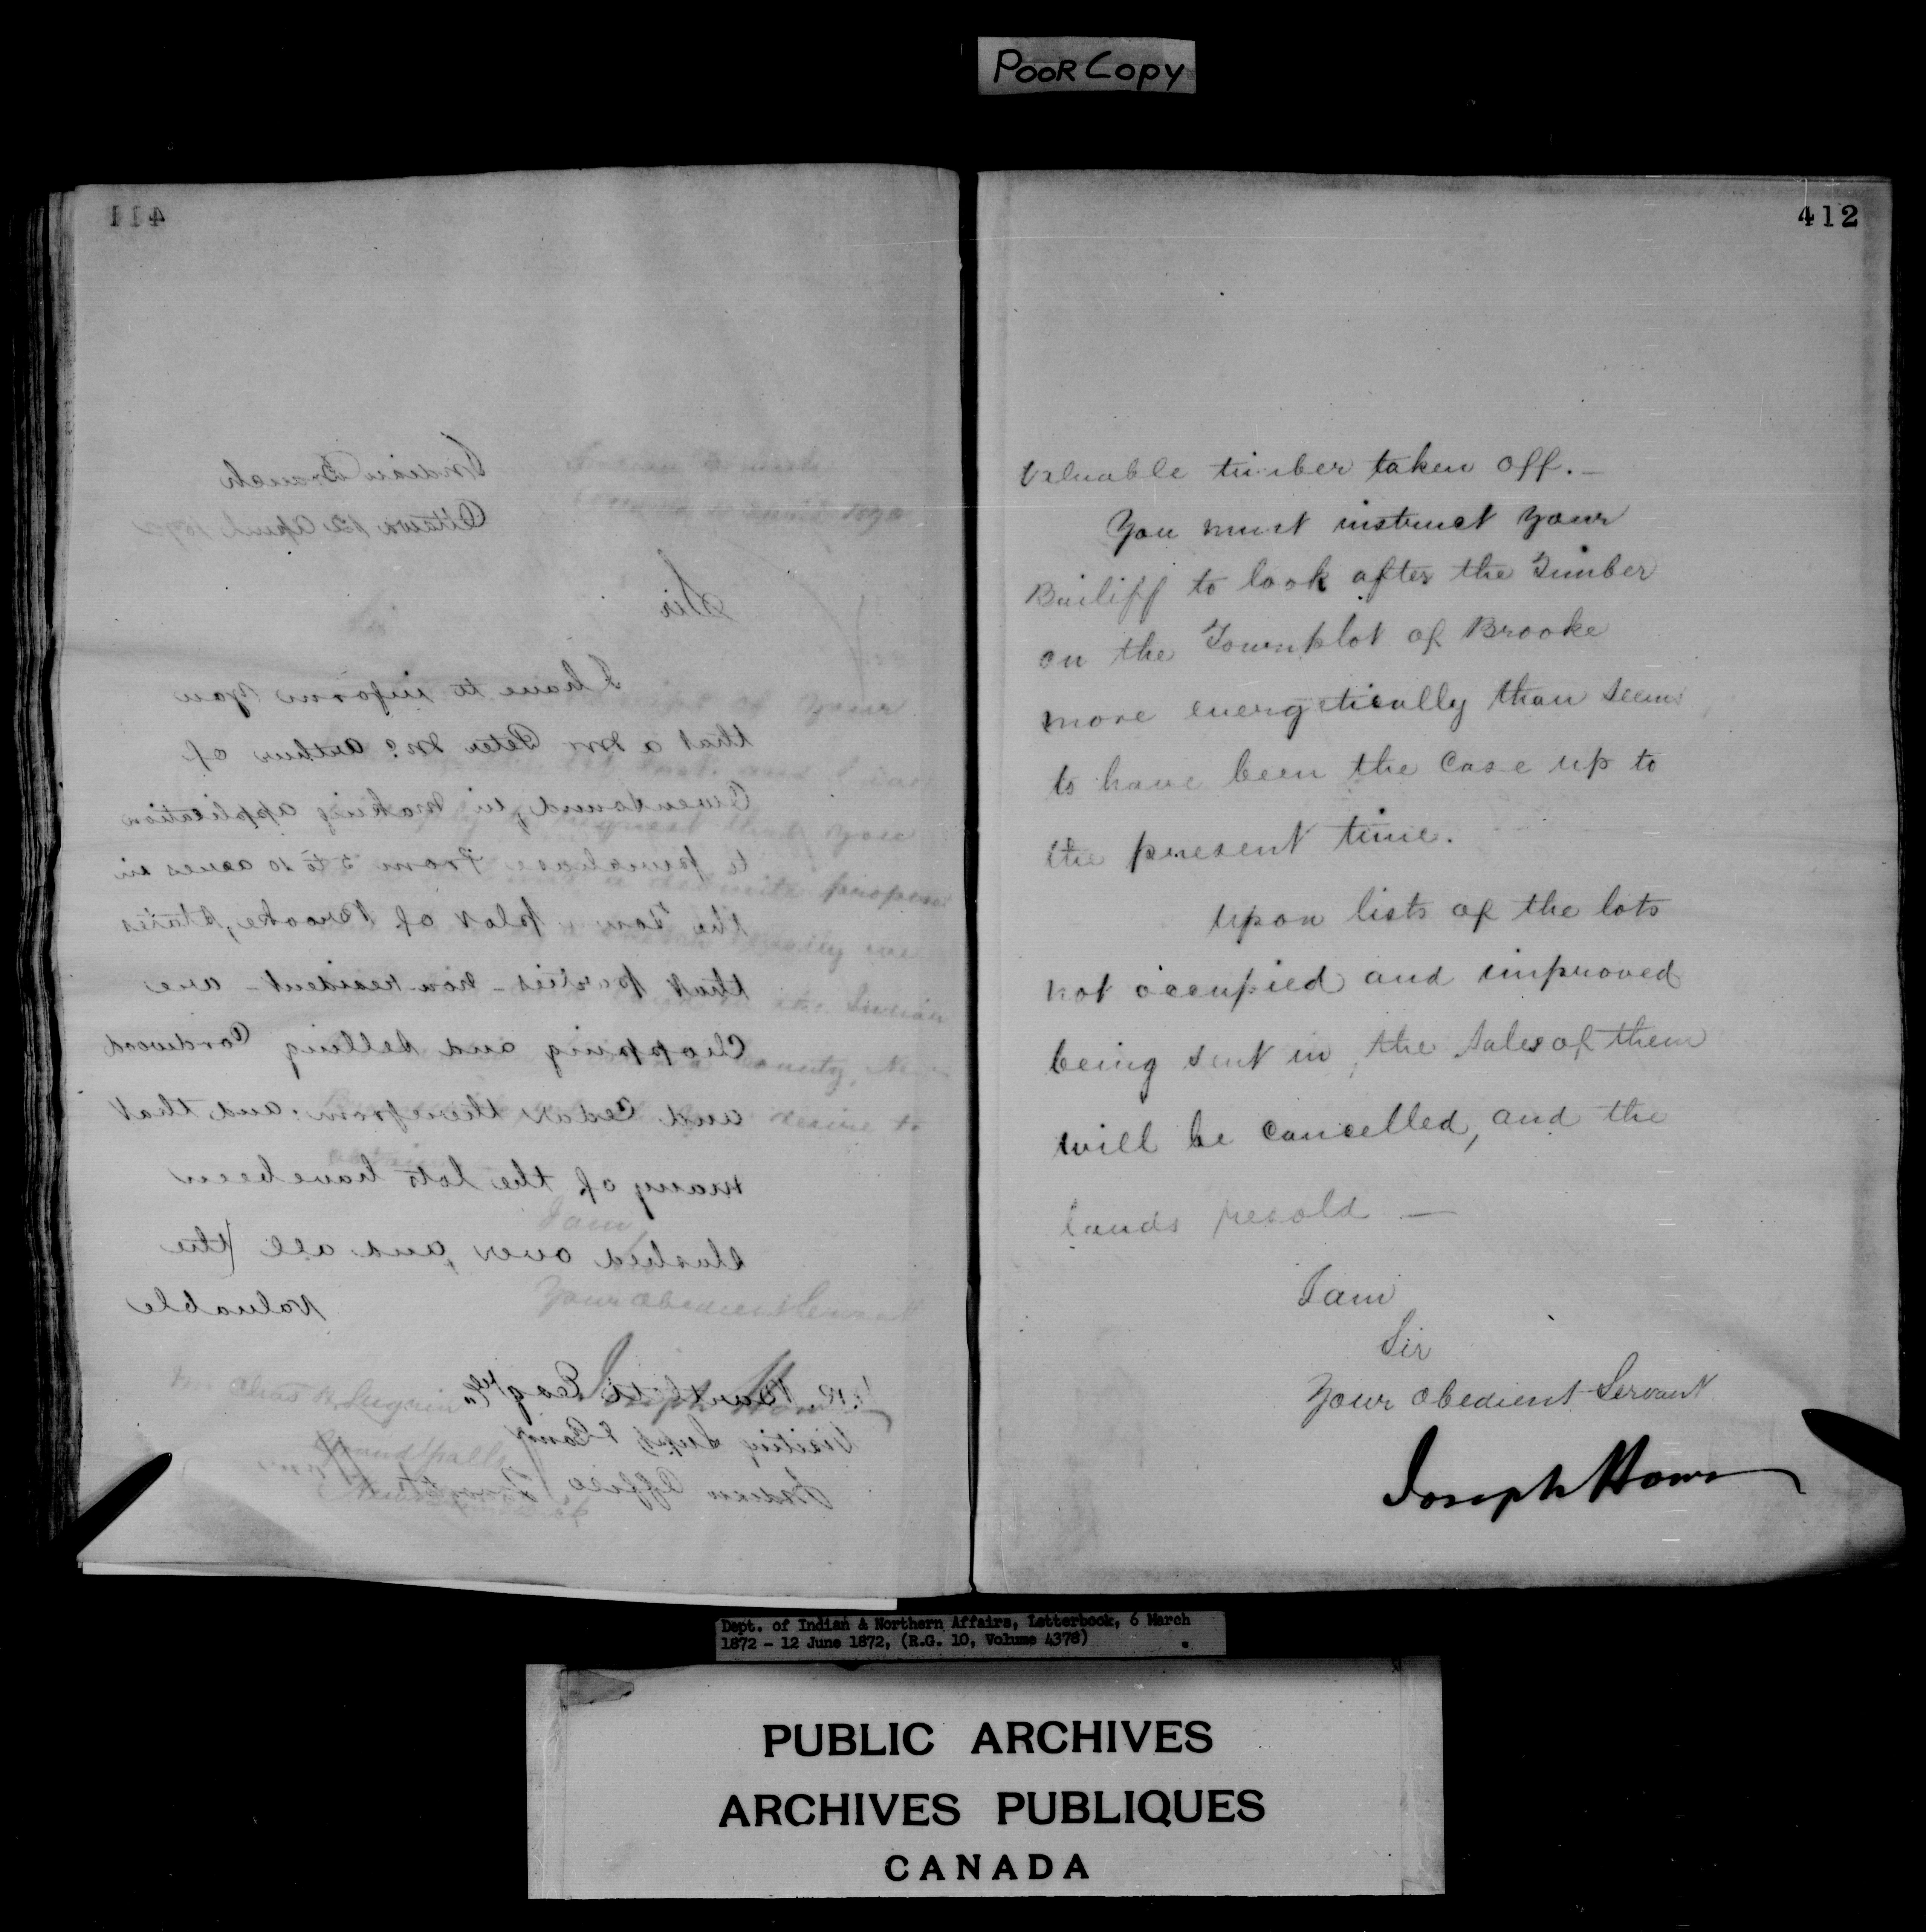 POOR COPY
411
Indian Branch
Ottawa 12 April 1872
Sir
I have to inform you
that a Mr Peter McArthur of
Owensound, in making application
to purchase from 5 to 10 acres in
the Town plot of Brooke, states
that parties - non-resident - are
Chopping and selling Cordwood
and Cedar therefrom: and that
many of the lots have been
slashed over and all the
valuable
W.R. Bartlett Esqre
Visiting Supt & Comr
Indian Office Toronto
412
valuable timber taken off. -
You must instruct your
Bailiff to look after the Timber
on the Townplot of Brooke
more energetically than seems
to have been the case up to
the present time.
Upon lists of the lots
not occupied and improved
being sent in, the sales of them
will be cancelled, and the
lands resold —
I am
Sir
Your obedient Servant
Joseph Howe
Dept. of Indian & Northern Affairs, Letterbook, 6 March
1872 - 12 June 1872, (R.G. 10, Volume 4378)
PUBLIC ARCHIVES
ARCHIVES PUBLIQUES
CANADA